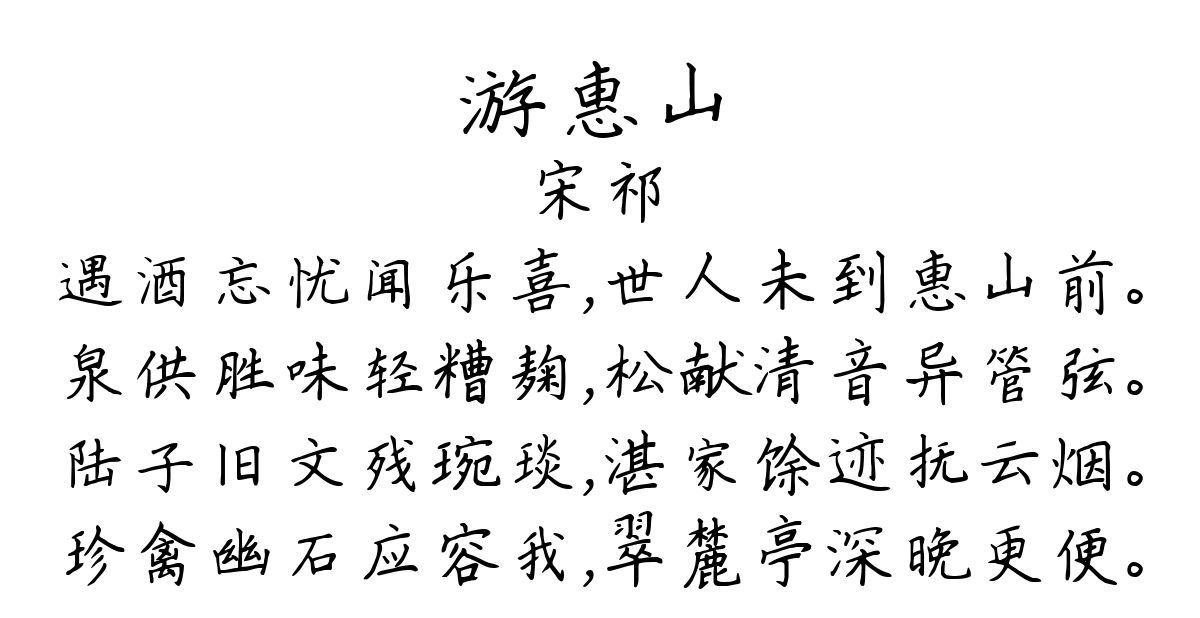 游惠山
宋祁
遇酒忘忧闻乐喜,世人未到惠山前。
泉供胜味轻糟麹,松献清音异管弦。
陆子旧文残琬琰,湛家馀迹抚云烟。
珍禽幽石应容我,翠麓亭深晚更便。